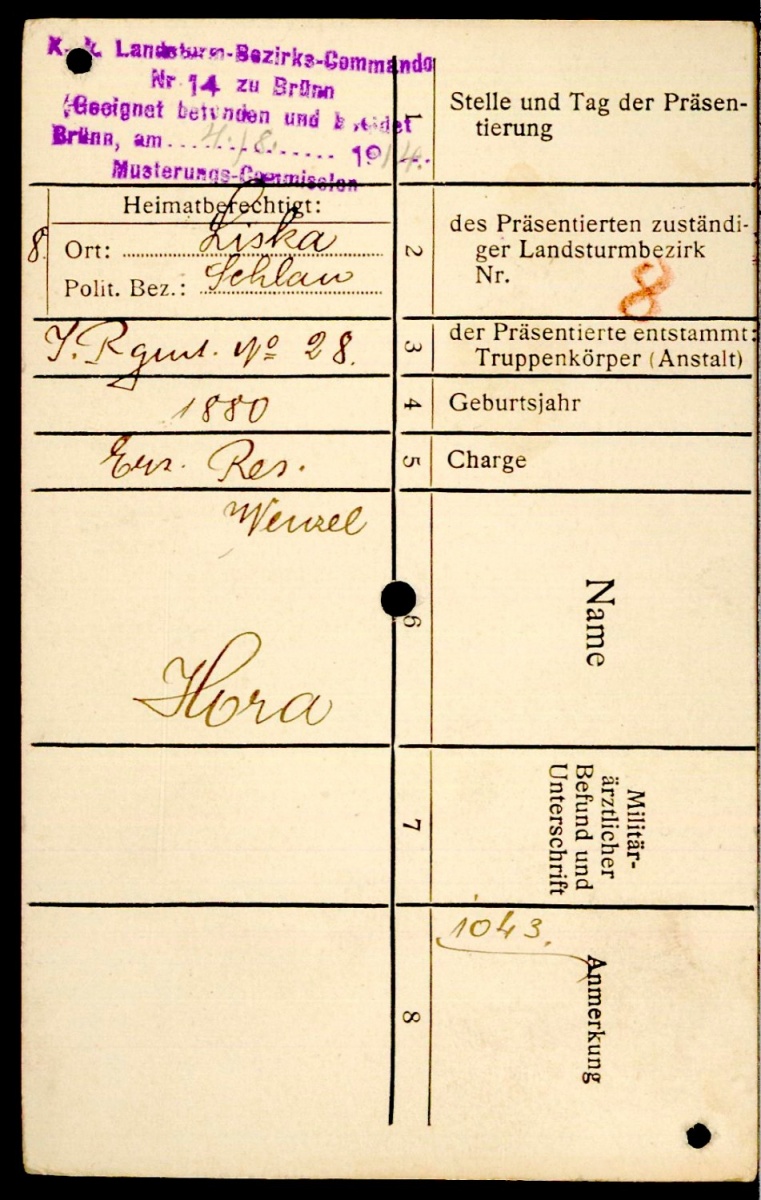 K. k. Landsturm-Bezirks-Commando
Nr 14 zu Brünn
(Geeignet befunden und beeidet
Brünn, am 4./8. 1914.
Musterungs-Commission
1
Stelle und Tag der Präsen-
tierung
Heimatberechtigt:
8.
Ort: Liska
Polit. Bez.: Schlan
2
des Präsentierten zuständi-
ger Landsturmbezirk
Nr.
8
I. Rgmt. No 28.
3
der Präsentierte entstammt:
Truppenkörper (Anstalt)
1880
4
Geburtsjahr
Ers. Res.
5
Charge
Wenzel
Hora
6
Name
7
Militär-
ärztlicher
Befund und
Unterschrift
8
1043.
Anmerkung